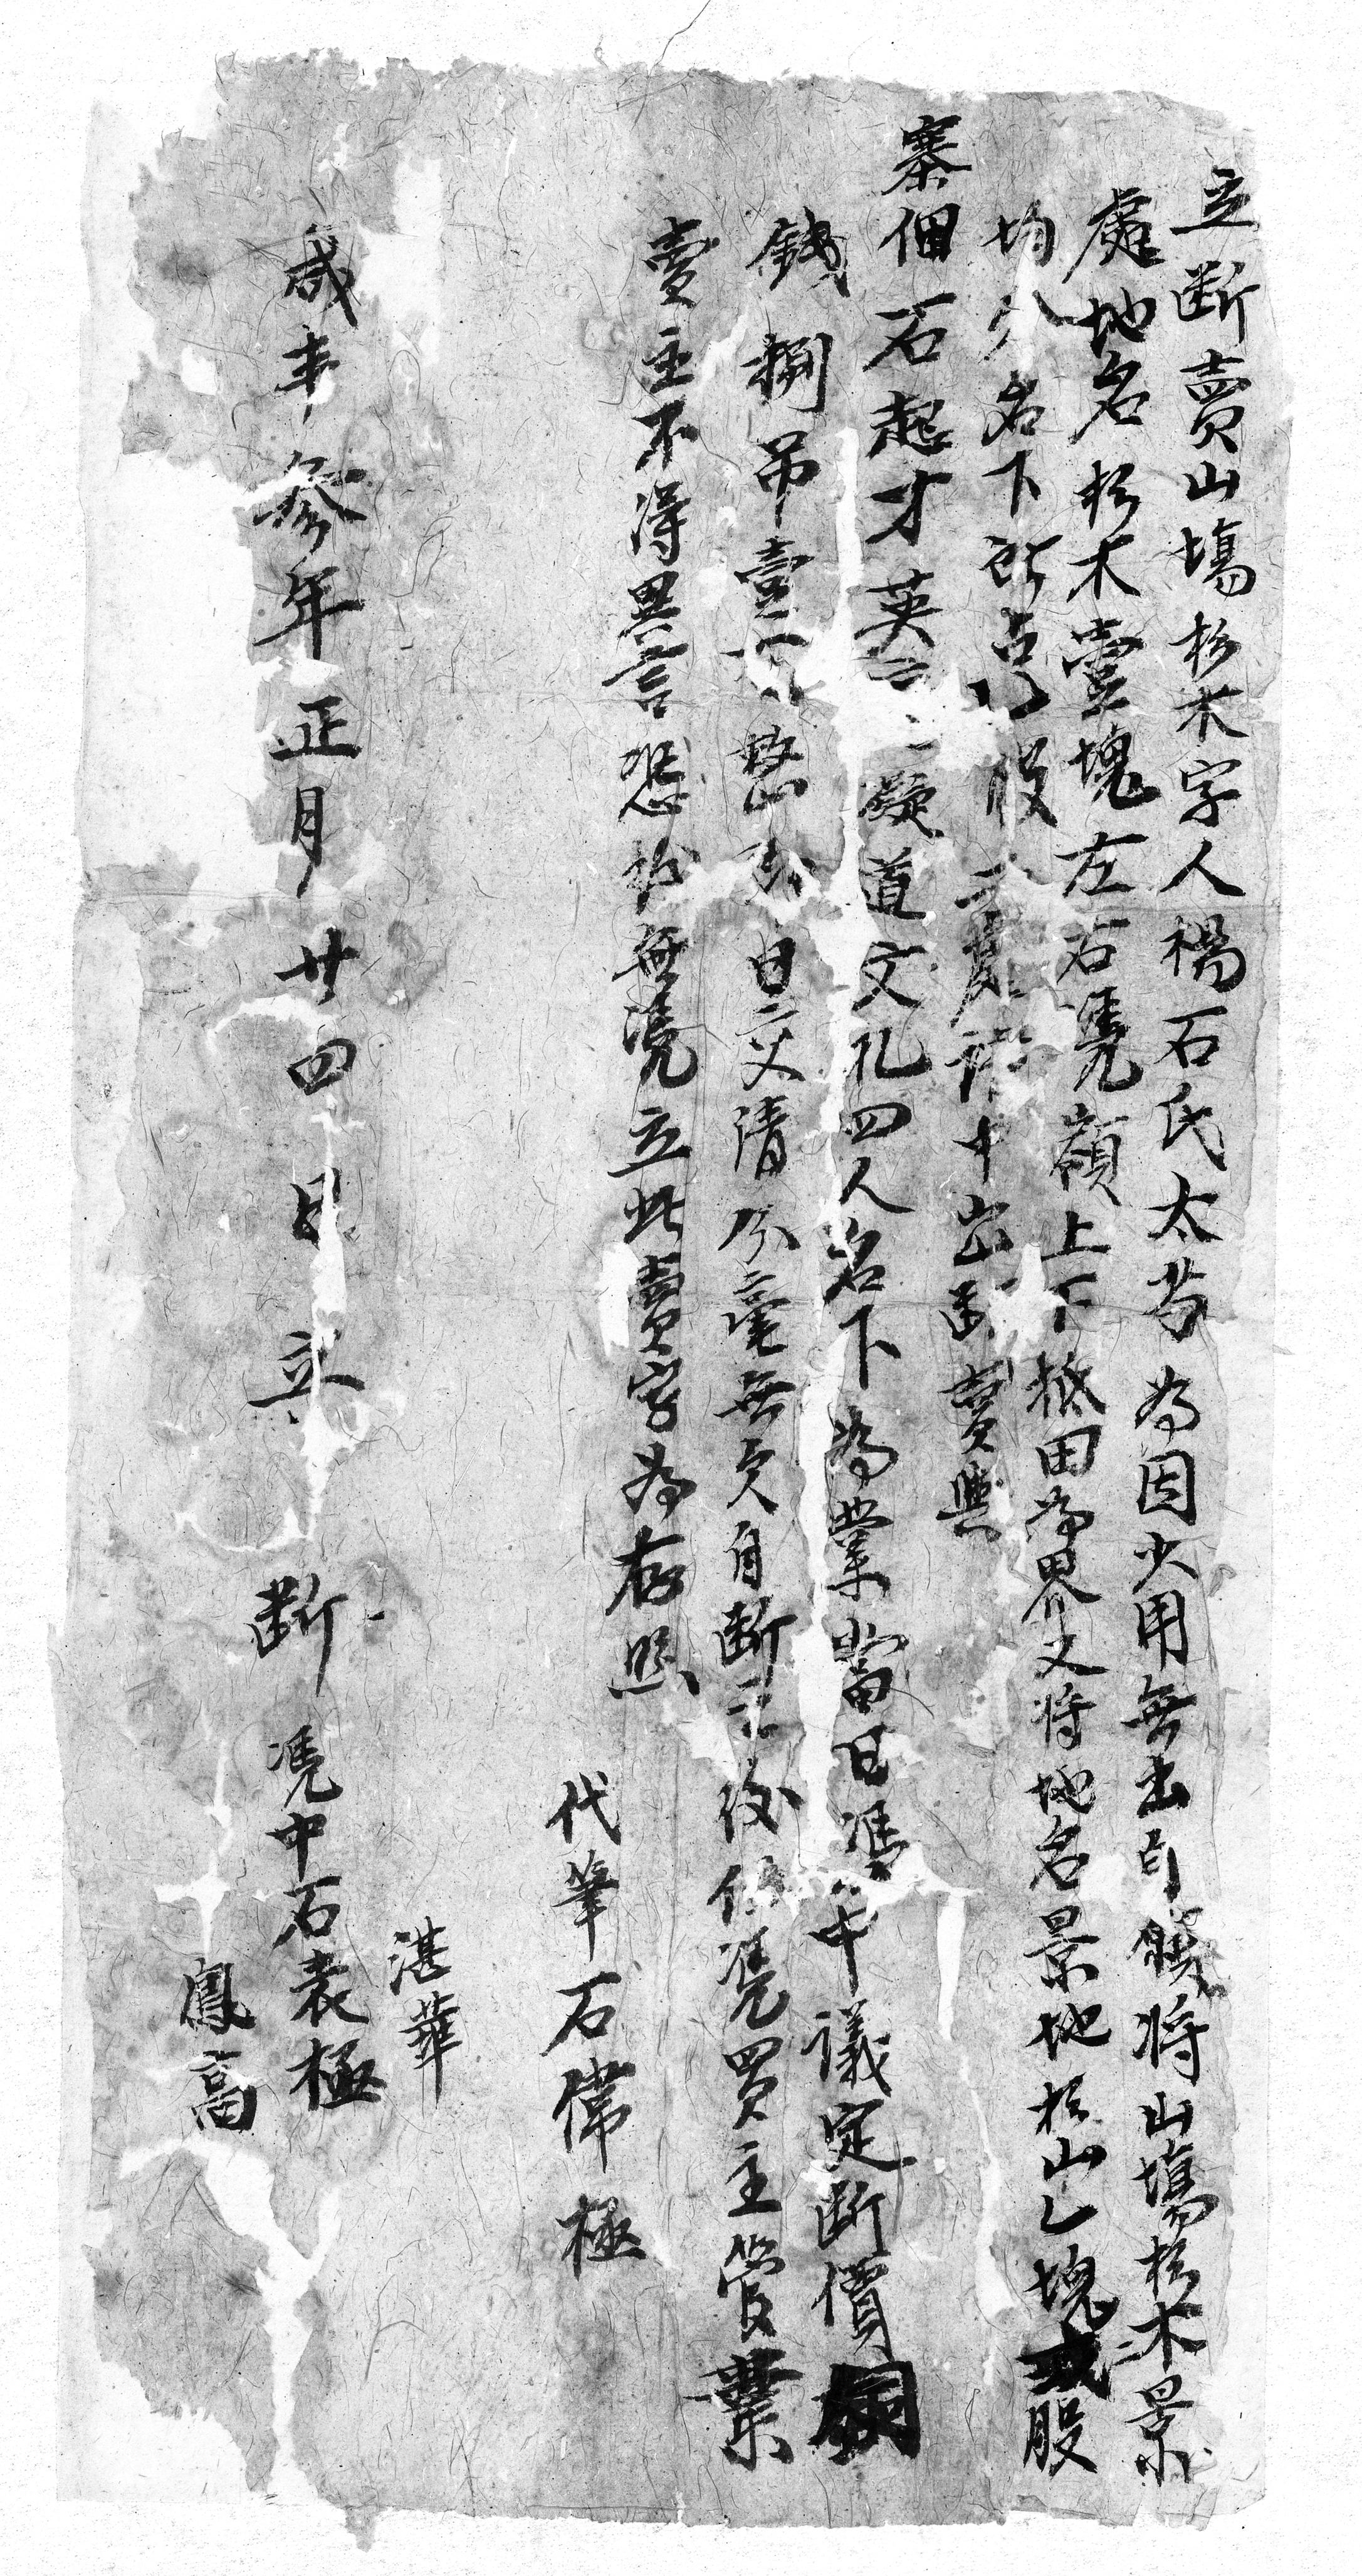 立断賣山塲杉木字人楊石氏太芳為因少用無出自錢将山塲杉木景
處地名杉木壹塊左右凴嶺上下抵田為界又将地名景地杉山乙塊貳股
均分名下所占乙股二處請中出断賣與
寨佃石起才英二凝道文孔四人名下為業當日凴中議定断價銅
錢捌吊壹百整即日交清分毫無欠自断之後任凴買主管業
賣主不得異言恐後無凴立此賣字為存照
代筆石偉極
湛華
凴中石袁極
鳳高
咸丰叁年正月廿四日立断